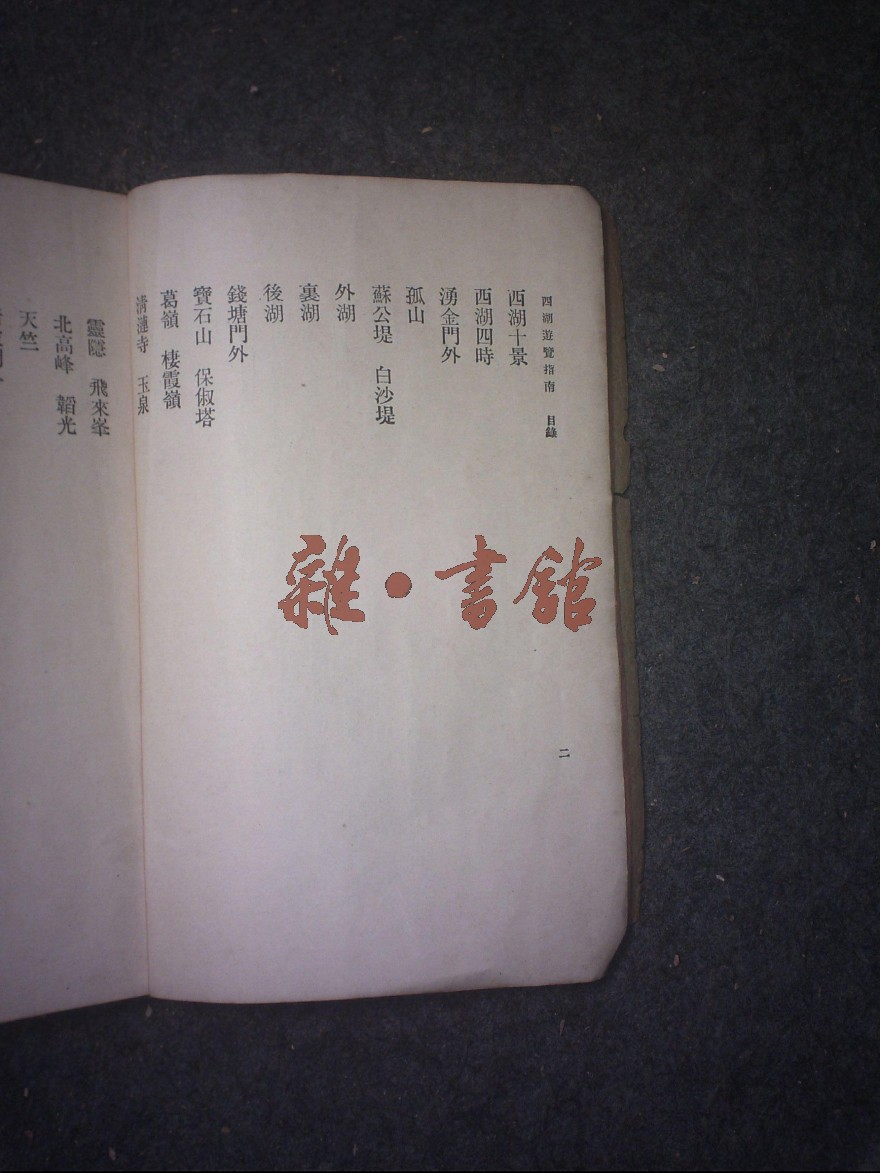 西湖遊覽指南 目錄
西湖十景
西湖四時
湧金門外
孤山
蘇公堤 白沙堤
外湖
裏湖
後湖
錢塘門外
寶石山 保俶塔
葛嶺 棲霞嶺
清漣寺 玉泉
二
靈隱 飛來峯
北高峰 韜光
天竺
雜·書館